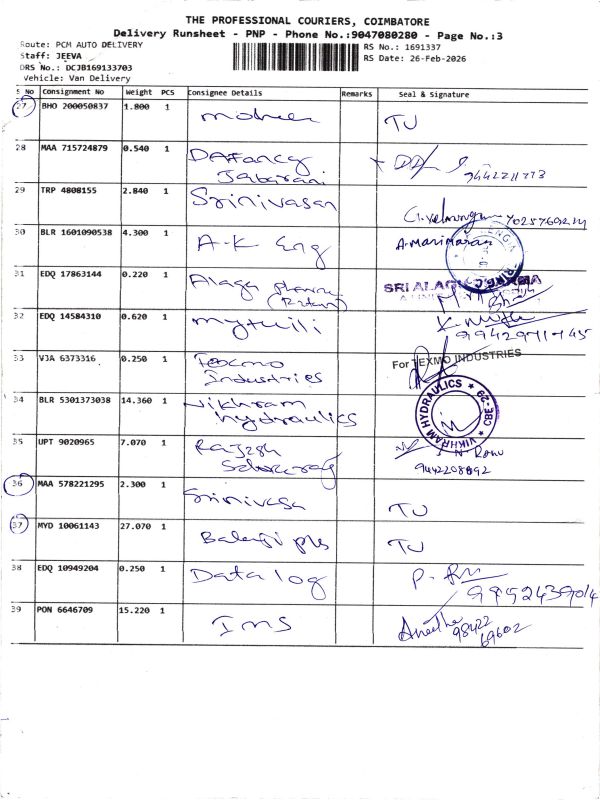 THE PROFESSIONAL COURIERS, COIMBATORE
Delivery Runsheet - PNP - Phone No.:9047080280 - Page No.:3
Route: PCM AUTO DELIVERY
Staff: JEEVA
DRS No.: DCJB169133703
Vehicle: Van Delivery
RS No.: 1691337
RS Date: 26-Feb-2026
S No Consignment No Weight PCS Consignee Details Remarks Seal & Signature
27 BHO 200050837 1.800 1 TU
28 MAA 715724879 0.540 1
29 TRP 4808155 2.840 1 Srinivasan
30 BLR 1601090538 4.300 1 A-K Eng A.Marimaran
31 EDQ 17863144 0.220 1 Alaga
SRI ALAG
32 EDQ 14584310 0.620 1 mythili
33 VJA 6373316 0.250 1 Texmo Industries For TEXMO INDUSTRIES
34 BLR 5301373038 14.360 1 Vikhram hydraulics VIKHRAM HYDRAULICS CBE-29
35 UPT 9020965 7.070 1 Rajesh
9442208892
36 MAA 578221295 2.300 1 Srinivasa TU
37 MYD 10061143 27.070 1 Balaji TU
38 EDQ 10949204 0.250 1 Data log
39 PON 6646709 15.220 1 IMS
98422
69602